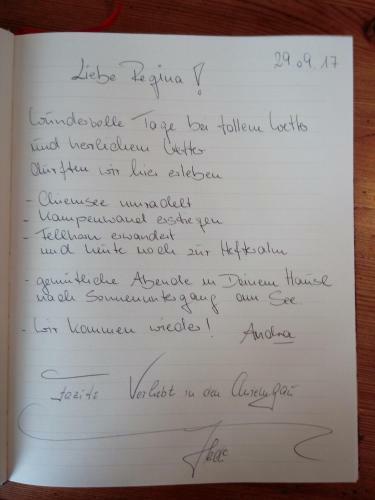 29.09.17
Liebe Regina!
Wundervolle Tage bei tollem Wetter
und herrlichem Wetter
durften wir hier erleben
- Chiemsee umradelt
- Kampenwand erstiegen
- erwandert
und heute noch zur Hefteralm
- gemütliche Abende in Deinem Hause
nach Sonnenuntergang am See.
- Wir kommen wieder!
Andrea
Fazit: Verliebt in den Chiemgau